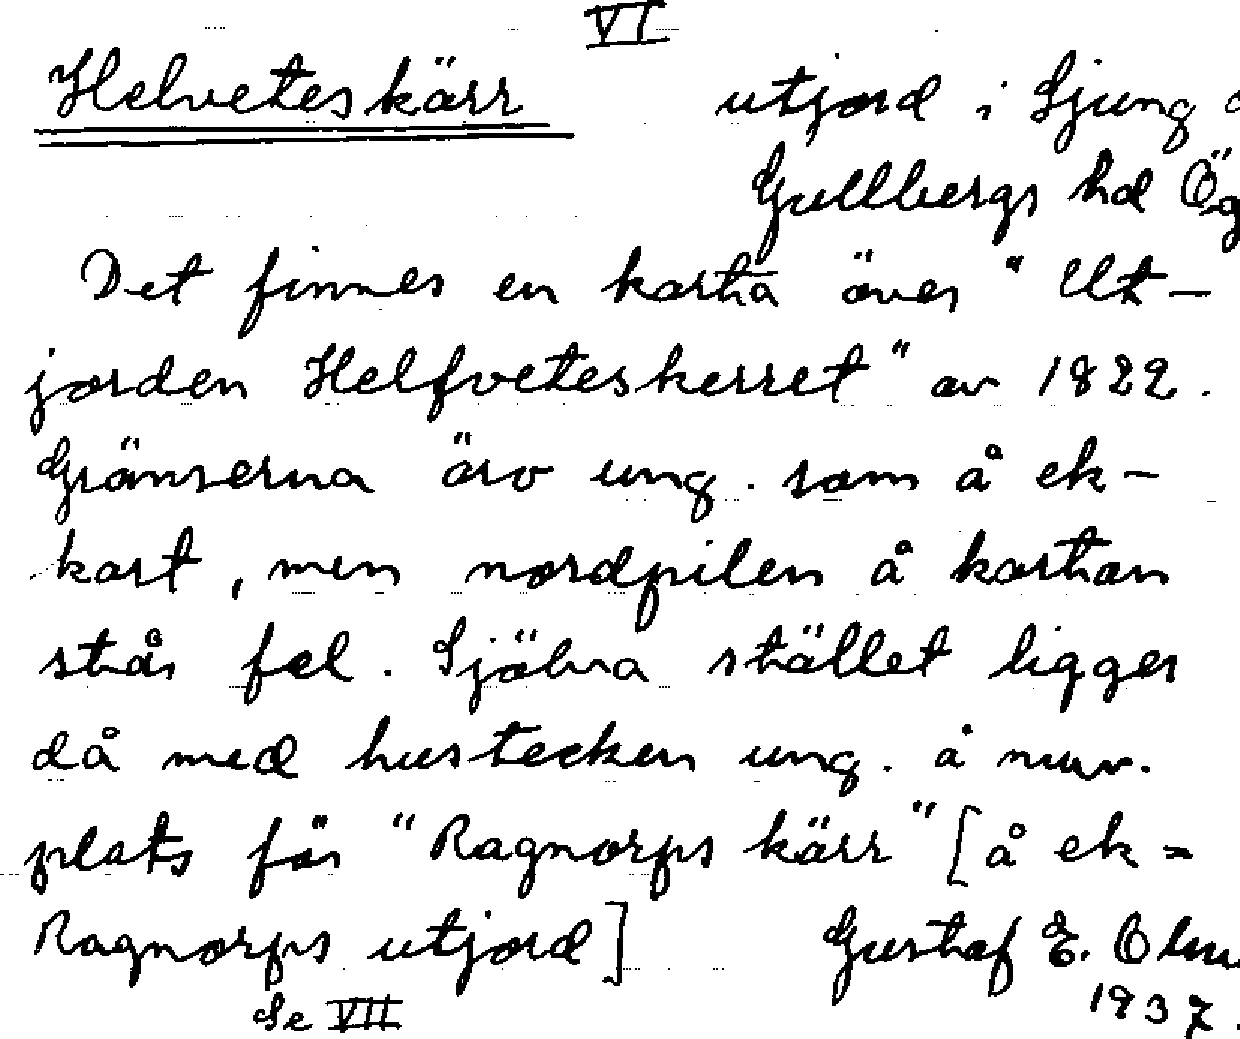 VI
Helveteskärr utjord i Ljung
Gullbergs hd Ög
Det finnes en karta över "Ut-
jorden Helfveteskerret" av 1822.
Gränserna äro ung. som å ek-
kart, men nordpilen å kartan
står fel. Själva stället ligger
då med hustecken ung. å nuv.
plats för "Ragnorps kärr" [å ek =
Ragnorps utjord] Gustaf E. Olsson
Se VII 1937.